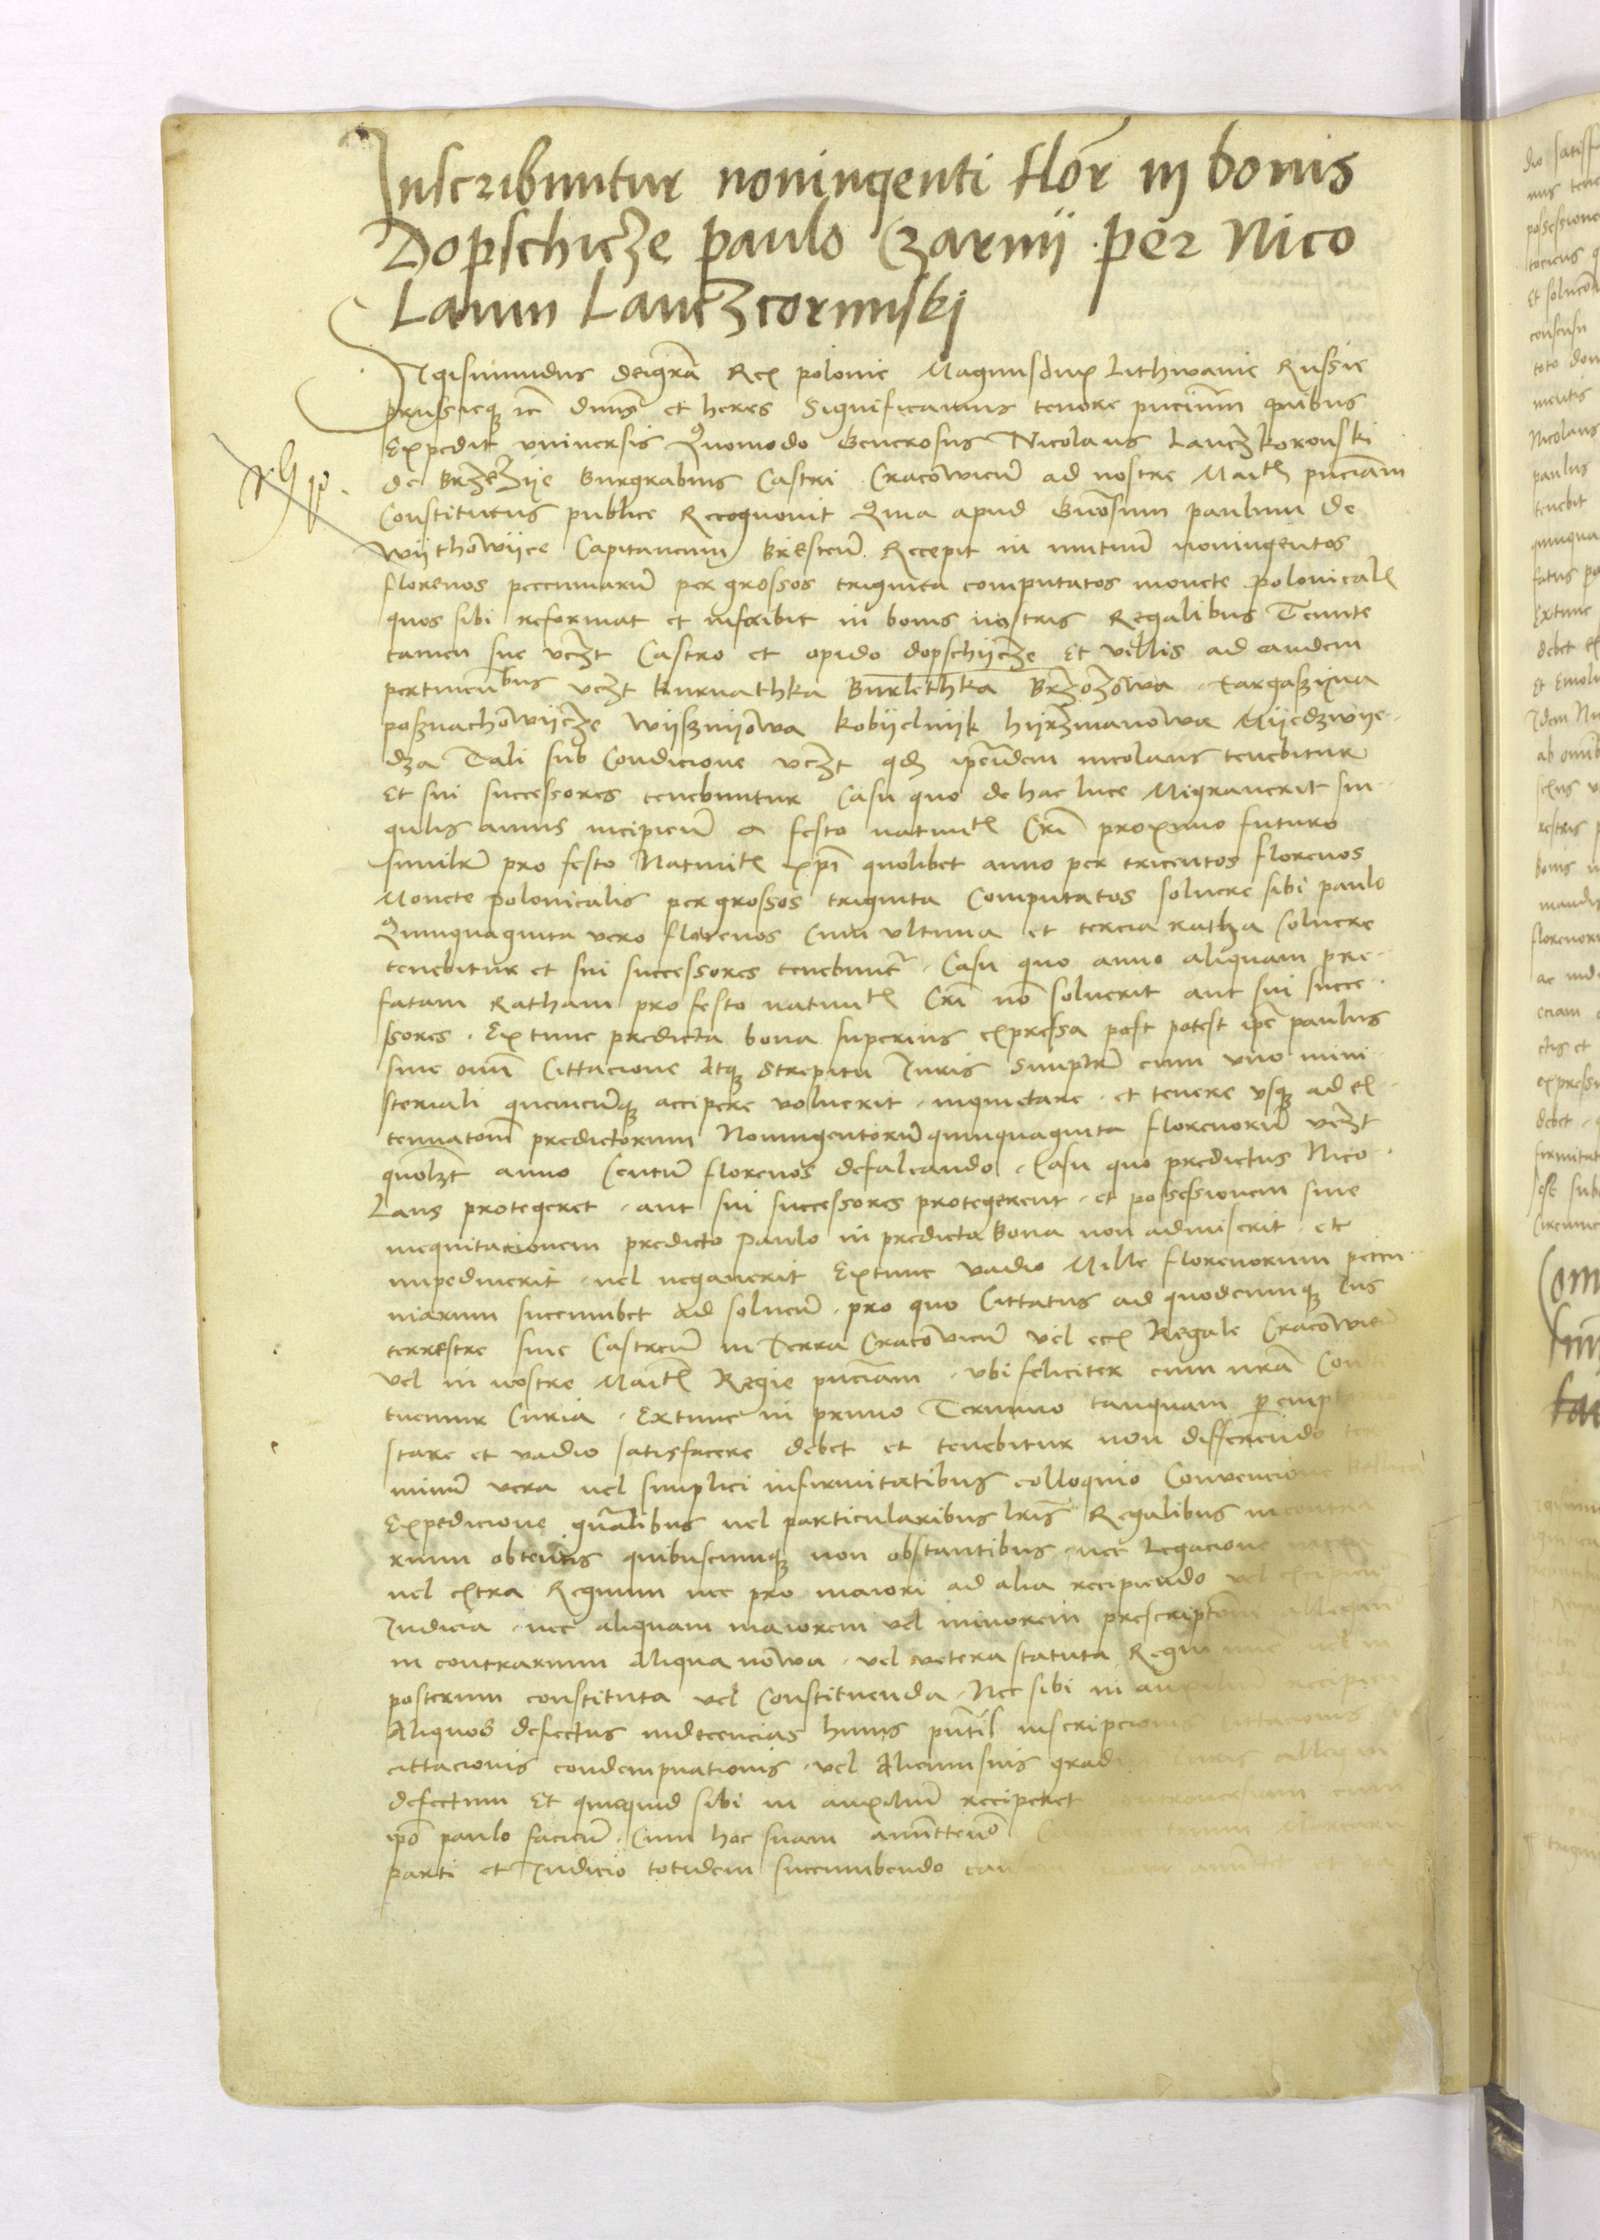 Inscribuntur noningenti flor in bonis
Dopschicze paulo Czarnii per Nico
Laum Lanczcorunski
Sigismundus deigrã Rex polonie Magnusdux Lithwanie Russie
prussieq ic dnus et heres Significamus tenore pncium quibus
Expedit vniversis Quomodo Generosus Nicolaus Lanczkoronski
de Brzezije Burgrabius Castri Cracowien ad nostre Maitis pnciam
Constitutus publice Recognovit Quia apud Gnosum paulum de
Wijthowijce Capitaneum Bresten Recepit in mutuu noningentos
florenos pecuniaru per grossos triginta computatos monete polonical
quos sibi reformat et inscribit in bonis nostris Regalibus Tennte
tamen sue vczt Castro et opido dopschijcze Et villis ad eandem
pertinenbus vczt kunathka Burlethka Brzozowa Targaszijna
posznachowijcze wijsznijowa kobijelnijk hijrzmanowa Mijedzwije
dza Tali sub Condicione vczt qd ipeidem nicolaus tenebitur
Et sui successores tenebuntur Casu quo de hac luce Migraverit sin
gulis annis incipien a festo nativit Cri proximo futuro
similr pro festo Nativit xpi quolibet anno per tricentos florenos
Monete polonicalis per grossos triginta Computatos soluere sibi paulo
Quinquaginta vero florenos Cum ultima et tercia ratha soluere
tenebitur et sui successores tenebunt Casu quo anno aliquam pre
fatam Ratham pro festo nativit Cri no soluerit aut sui succe
ssores Extunc predicta bona superius expressa post potest ipe paulus
sine omi Cittacione Atq strepitu Iuris Simplr cum vno mini
steriali quemcunq accipere voluerit inquietare et tenere vsq ad ex
tenuatom predictorum Noningentoru quinquaginta florenoru vczt
quolzt anno Centu florenos defalcando Casu quo predictus Nico
Laus protegeret aut sui successores protegerent et possessionem sine
inequitacionem predicto Paulo in predicta bona non admiserit et
impedinerit vel negaverit Extunc vadio Mille florenorum pecu
niarum succumbet Ad soluen pro quo Cittatus ad quodcunq Ius
terrestre sive Castren in Terra Cracovien vel ecx Regale Cracowien
vel in nostre Mait Regie pnciam vbi feliciter cum nra Consti
tuemur Curia Extunc in primo Termino tanquam peremptorio
stare et vadio satisfacere debet et tenebitur non differendo ter
minu vera vel simplici infirmitatibus colloquio Convencione
Expedicione gnalibus vel particularibus lris Regalibus incontra
rium obtentis quibuscunq non obstantibus nec Legacione
vel extra Regnum nec pro maiori ad alia recipiendo vel
Iudicia nec aliquam maiorem vel minorem prescriptom allegan
in contrarium Aliqua nowa vel vetera statuta Regni nunc vel in
posterum constituta vel Constituenda Nec sibi in auxilium recipien
Aliquos defectus indecencias huius pntis inscripcionis
cittacionis condempnationis vel Alicuius suis grad
defectum Et quicquid sibi in auxiliu reciperet
ipo paulo facien Cum hoc suam amitten
parti et Iudicio totidem succumbendo